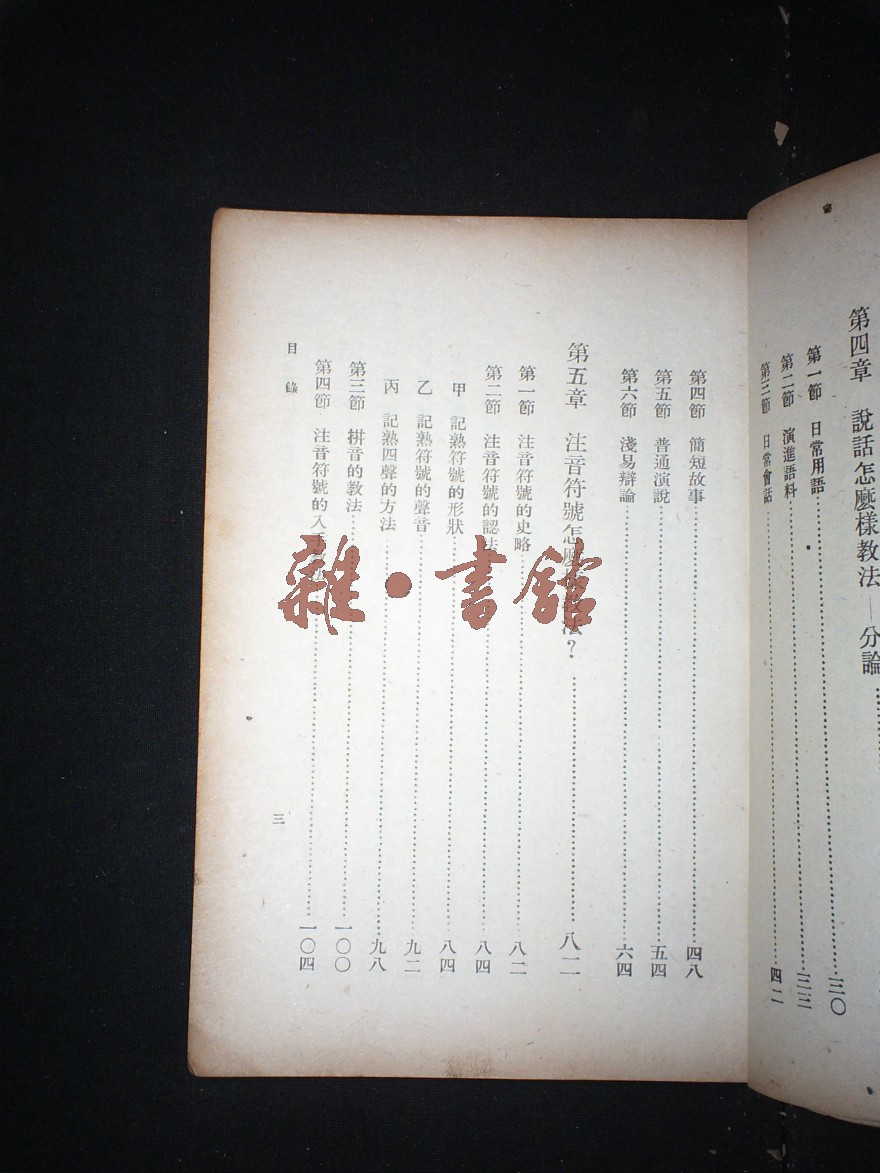 第四章 說話怎麼樣教法——分論
第一節 日常用語…………三〇
第二節 演進語料…………三三
第三節 日常會話…………四二
第四節 簡短故事…………四八
第五節 普通演說…………五四
第六節 淺易辯論…………六四
第五章 注音符號怎麼樣教法?…………八二
第一節 注音符號的史略…………八二
第二節 注音符號的認法…………八四
甲 記熟符號的形狀…………八四
乙 記熟符號的聲音…………九二
丙 記熟四聲的方法…………九八
第三節 拼音的教法…………一〇〇
第四節 注音符號的入手教法…………一〇四
目錄
三
雜·書館